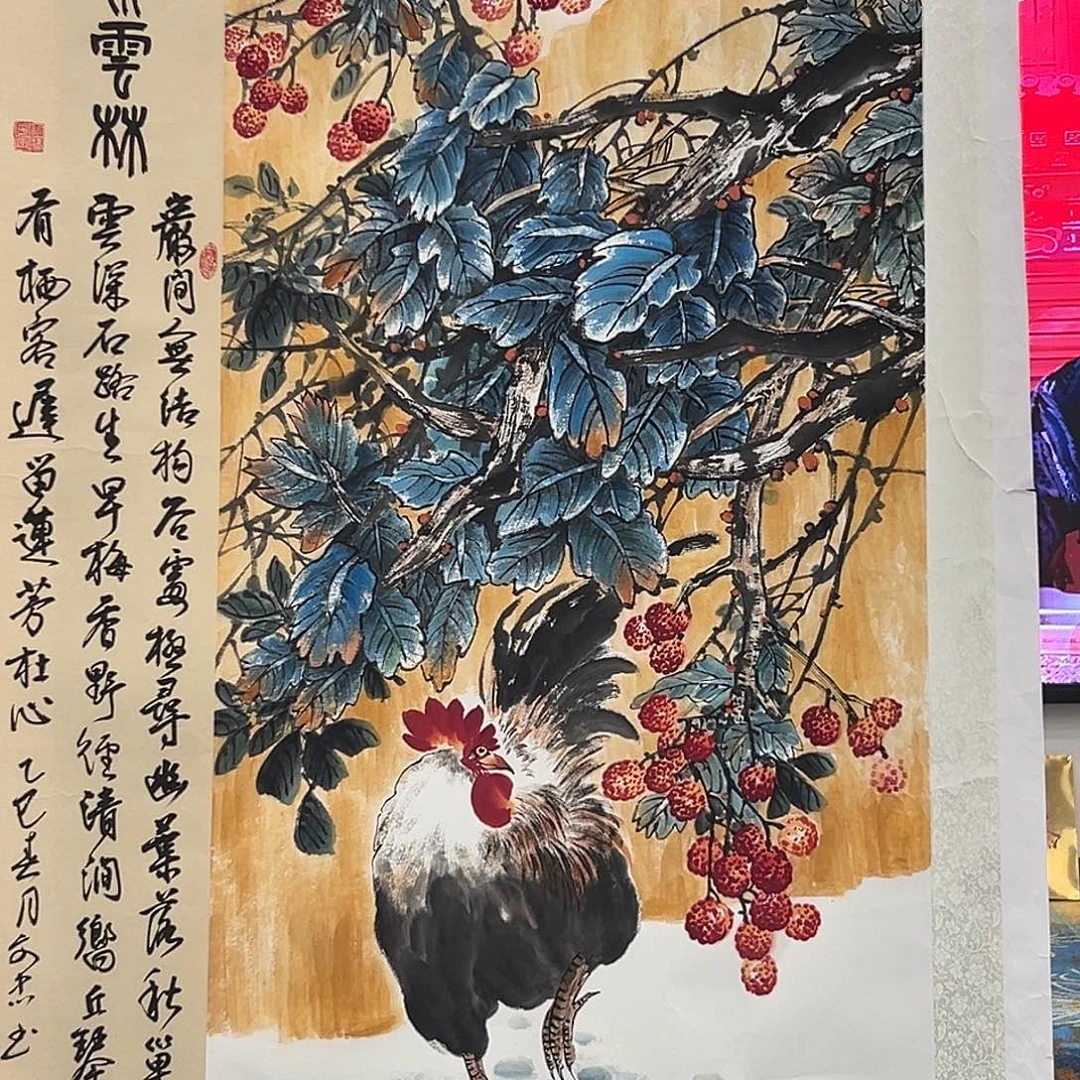 雲林
巖間無結构谷處極尋幽葉落秋巢
雲深石路生早梅香野徑清澗響丘琴
有栖客遲留連芳杜心乙巳春月文杰书